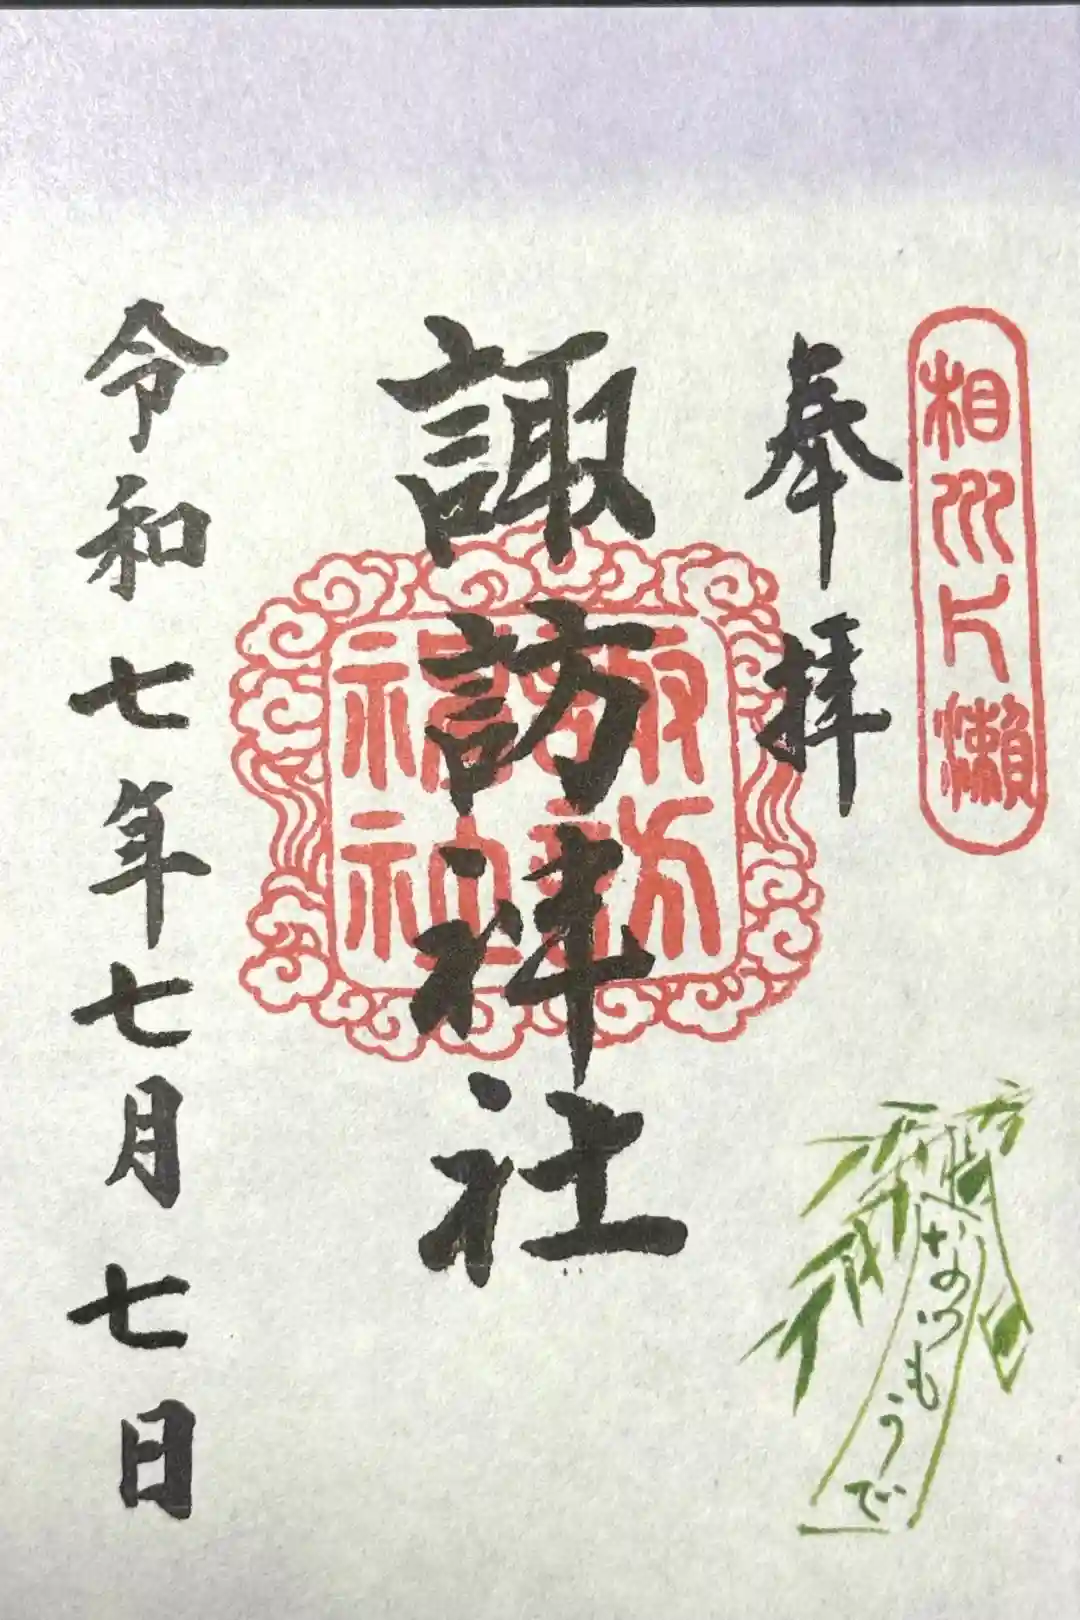 相州片瀬
奉拝
なつもうで
諏訪神社
諏訪
神社
令和七年七月七日